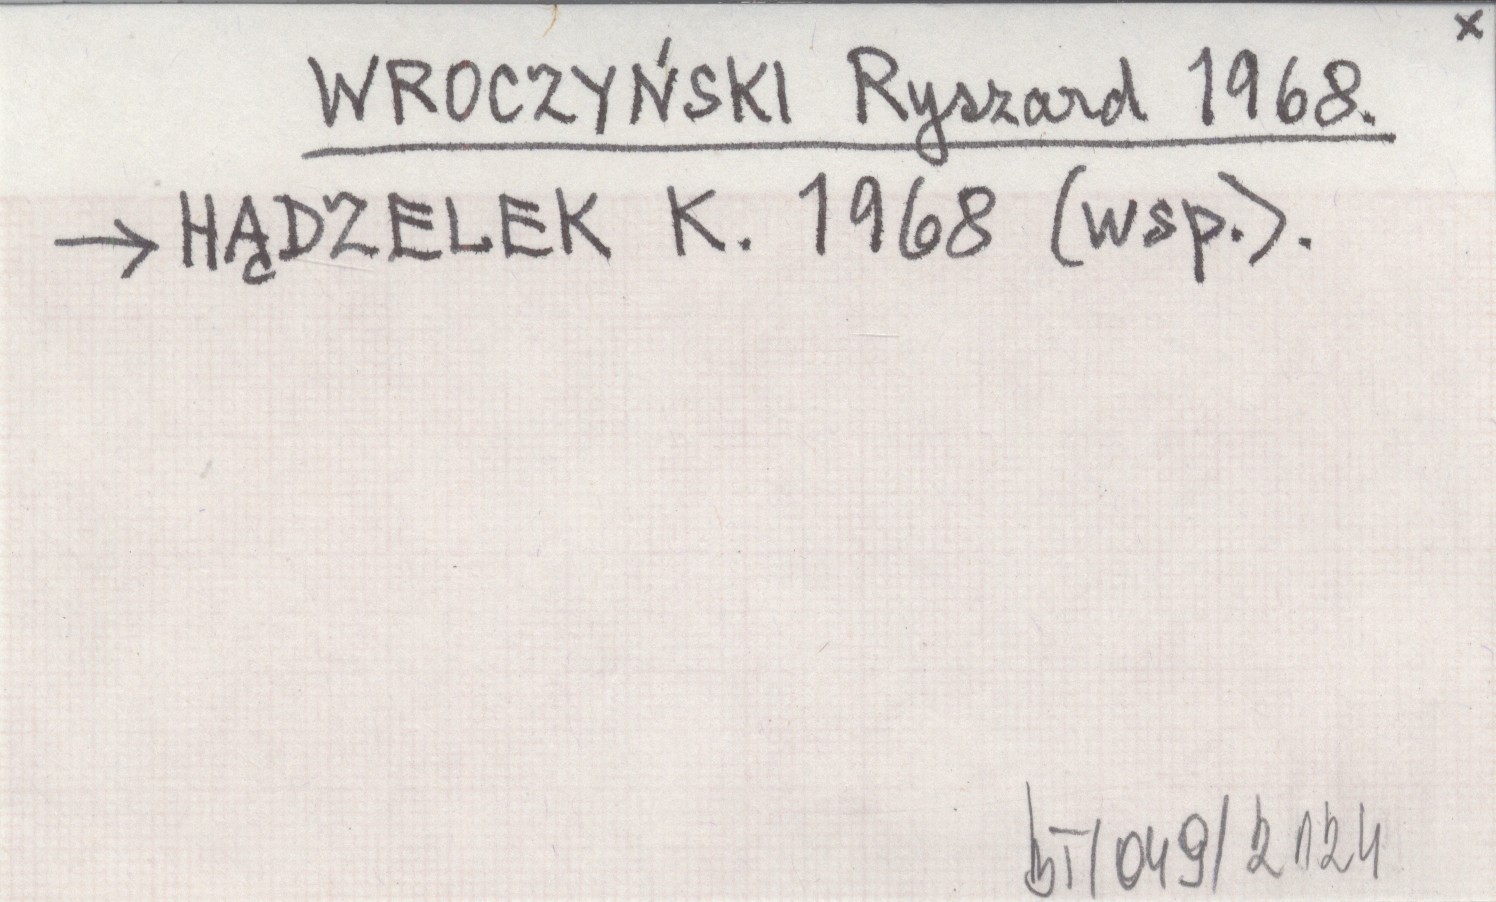 x
WROCZYŃSKI Ryszard 1968.
→ HĄDZELEK K. 1968 (wsp.).
bT/049/2024